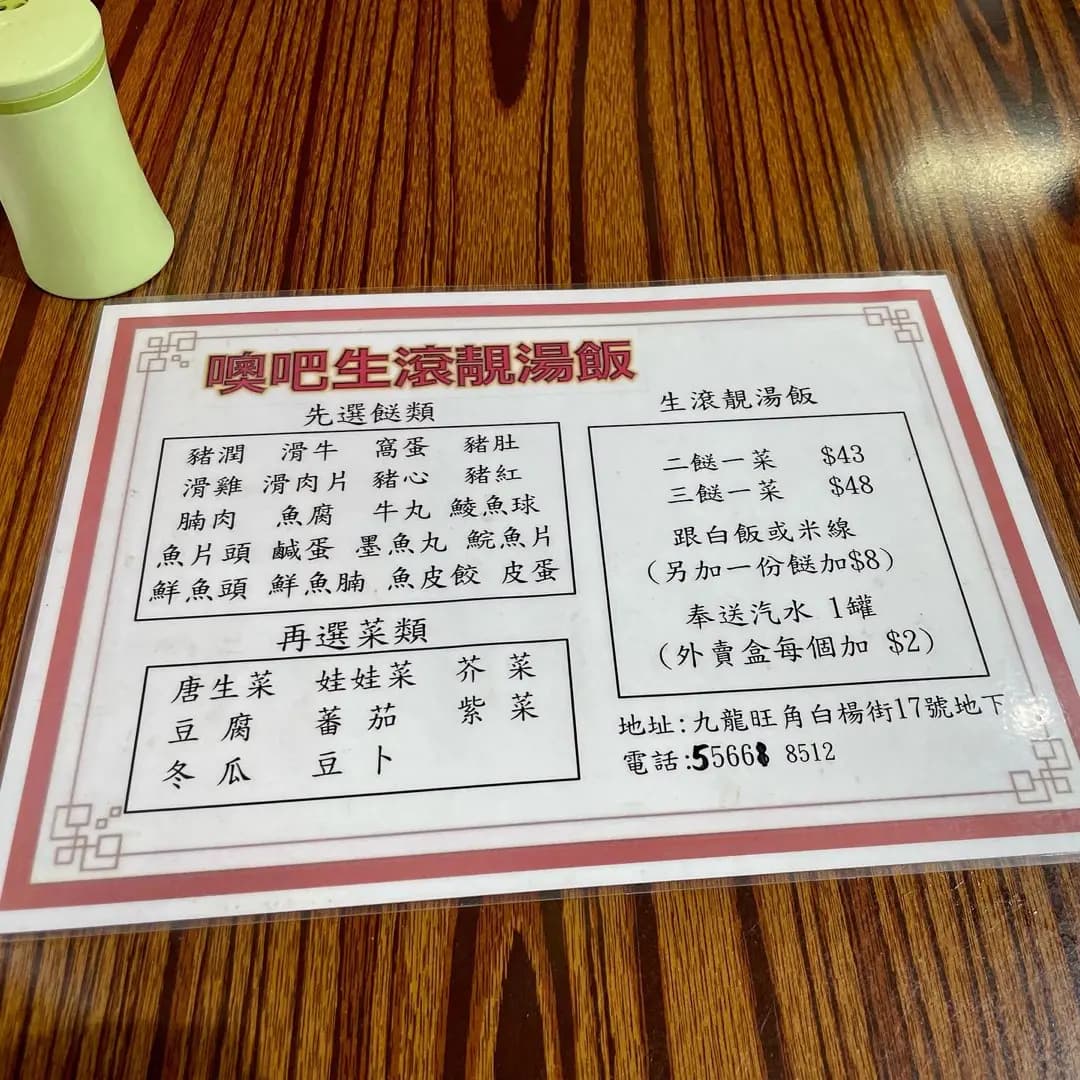 噢吧生滾靚湯飯
先選餸類
豬潤 滑牛 窩蛋 豬肚
滑雞 滑肉片 豬心 豬紅
腩肉 魚腐 牛丸 鯪魚球
魚片頭 鹹蛋 墨魚丸 鯇魚片
鮮魚頭 鮮魚腩 魚皮餃 皮蛋
再選菜類
唐生菜 娃娃菜 芥菜
豆腐 蕃茄 紫菜
冬瓜 豆卜
生滾靚湯飯
二餸一菜 $43
三餸一菜 $48
跟白飯或米線
(另加一份餸加$8)
奉送汽水 1罐
(外賣盒每個加 $2)
地址:九龍旺角白楊街17號地下
電話:55668 8512